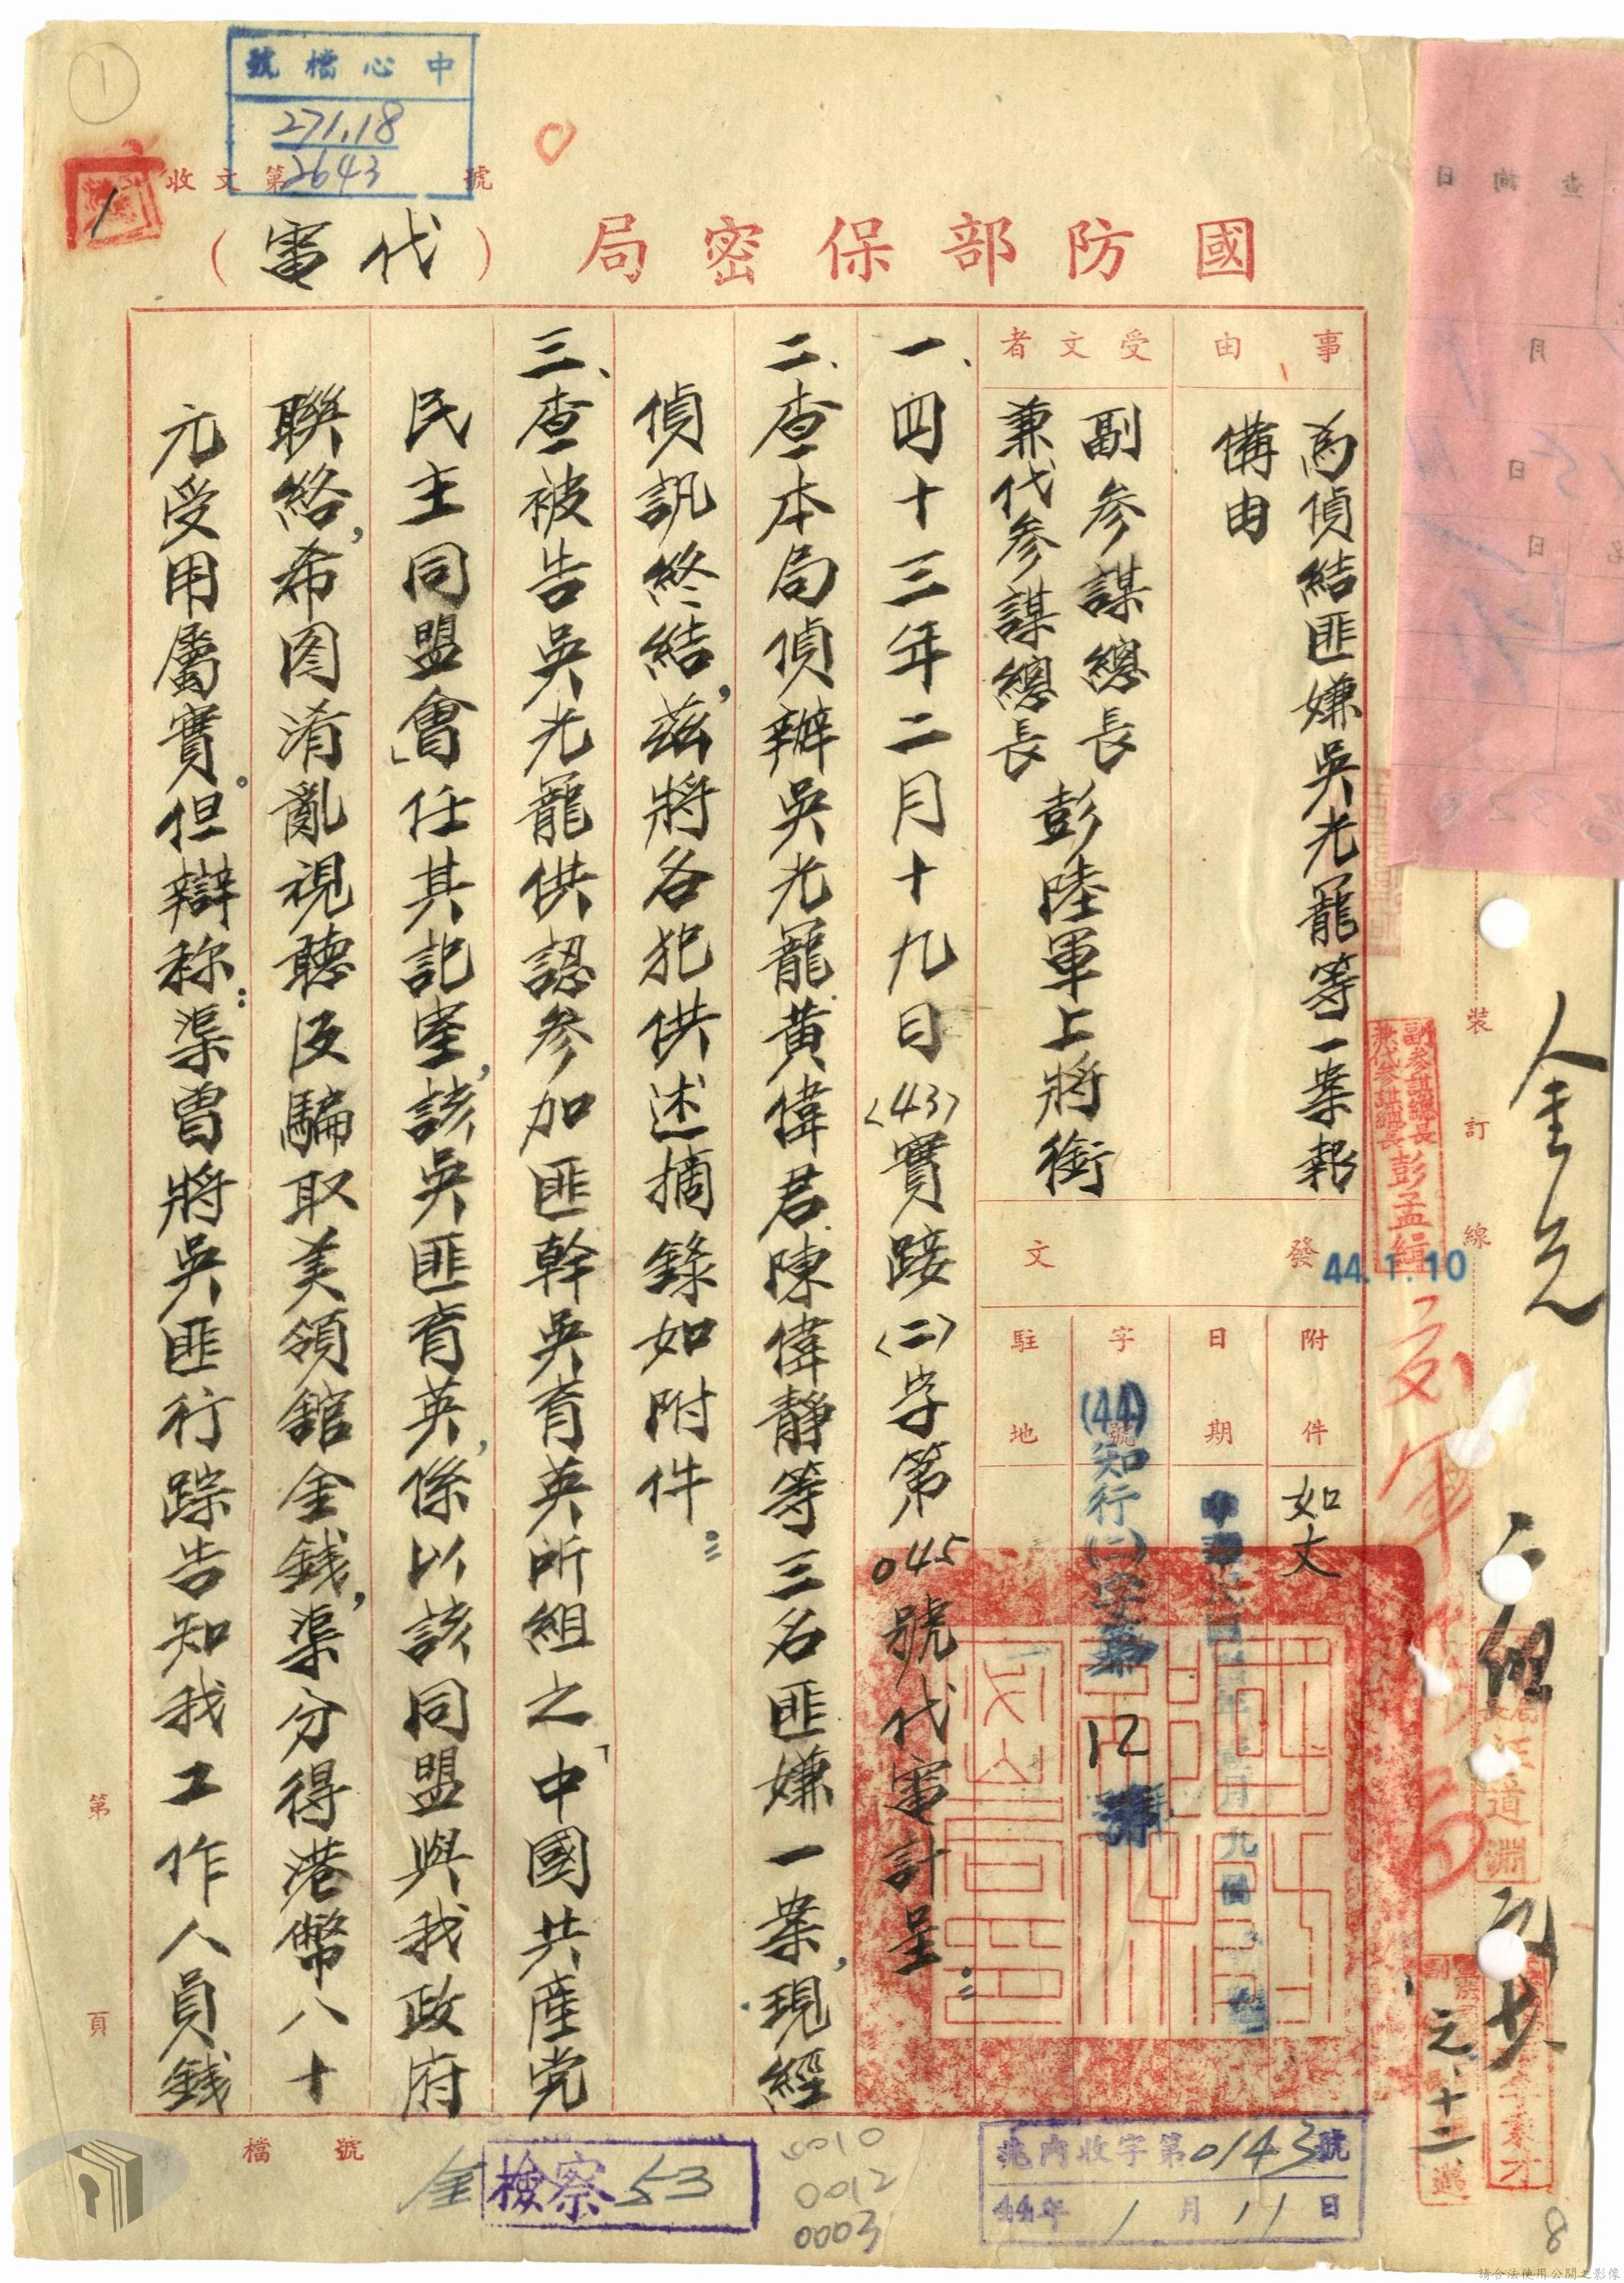 中心檔號
271.18
2643
收文第 號
國防部保密局(代電)
事由
為偵結匪嫌吳光龍等一案報
備由
受文者
副參謀總長
兼代參謀總長
彭陸軍上將銜
發文
附件
如文
日期
字號
(44)知行(二)字第12號
駐地
一、四十三年二月十九日(43)實踐(二)字第045號代電計呈:
二、查本局偵辦吳光龍黃偉君陳偉靜等三名匪嫌一案,現經
偵訊終結,茲將各犯供述摘錄如附件:
三、查被告吳光龍供認參加匪幹吳育英所組之「中國共產党
民主同盟會」任其記室,該吳匪育英,係以該同盟與我政府
聯絡,希图淆亂視聽及騙取美領舘金錢,渠分得港幣八十
元受用屬實。但辯称:渠曾將吳匪行踪告知我工作人員錢
副參謀總長
兼代參謀總長
彭孟緝
44.1.10
裝訂線
第 頁
檔 號
金
檢察 53
0010
0012
0003
兆內收字第0143號
44年1月11日
元.十二
8
1
查詢日
月
日
請合法使用公開之影像